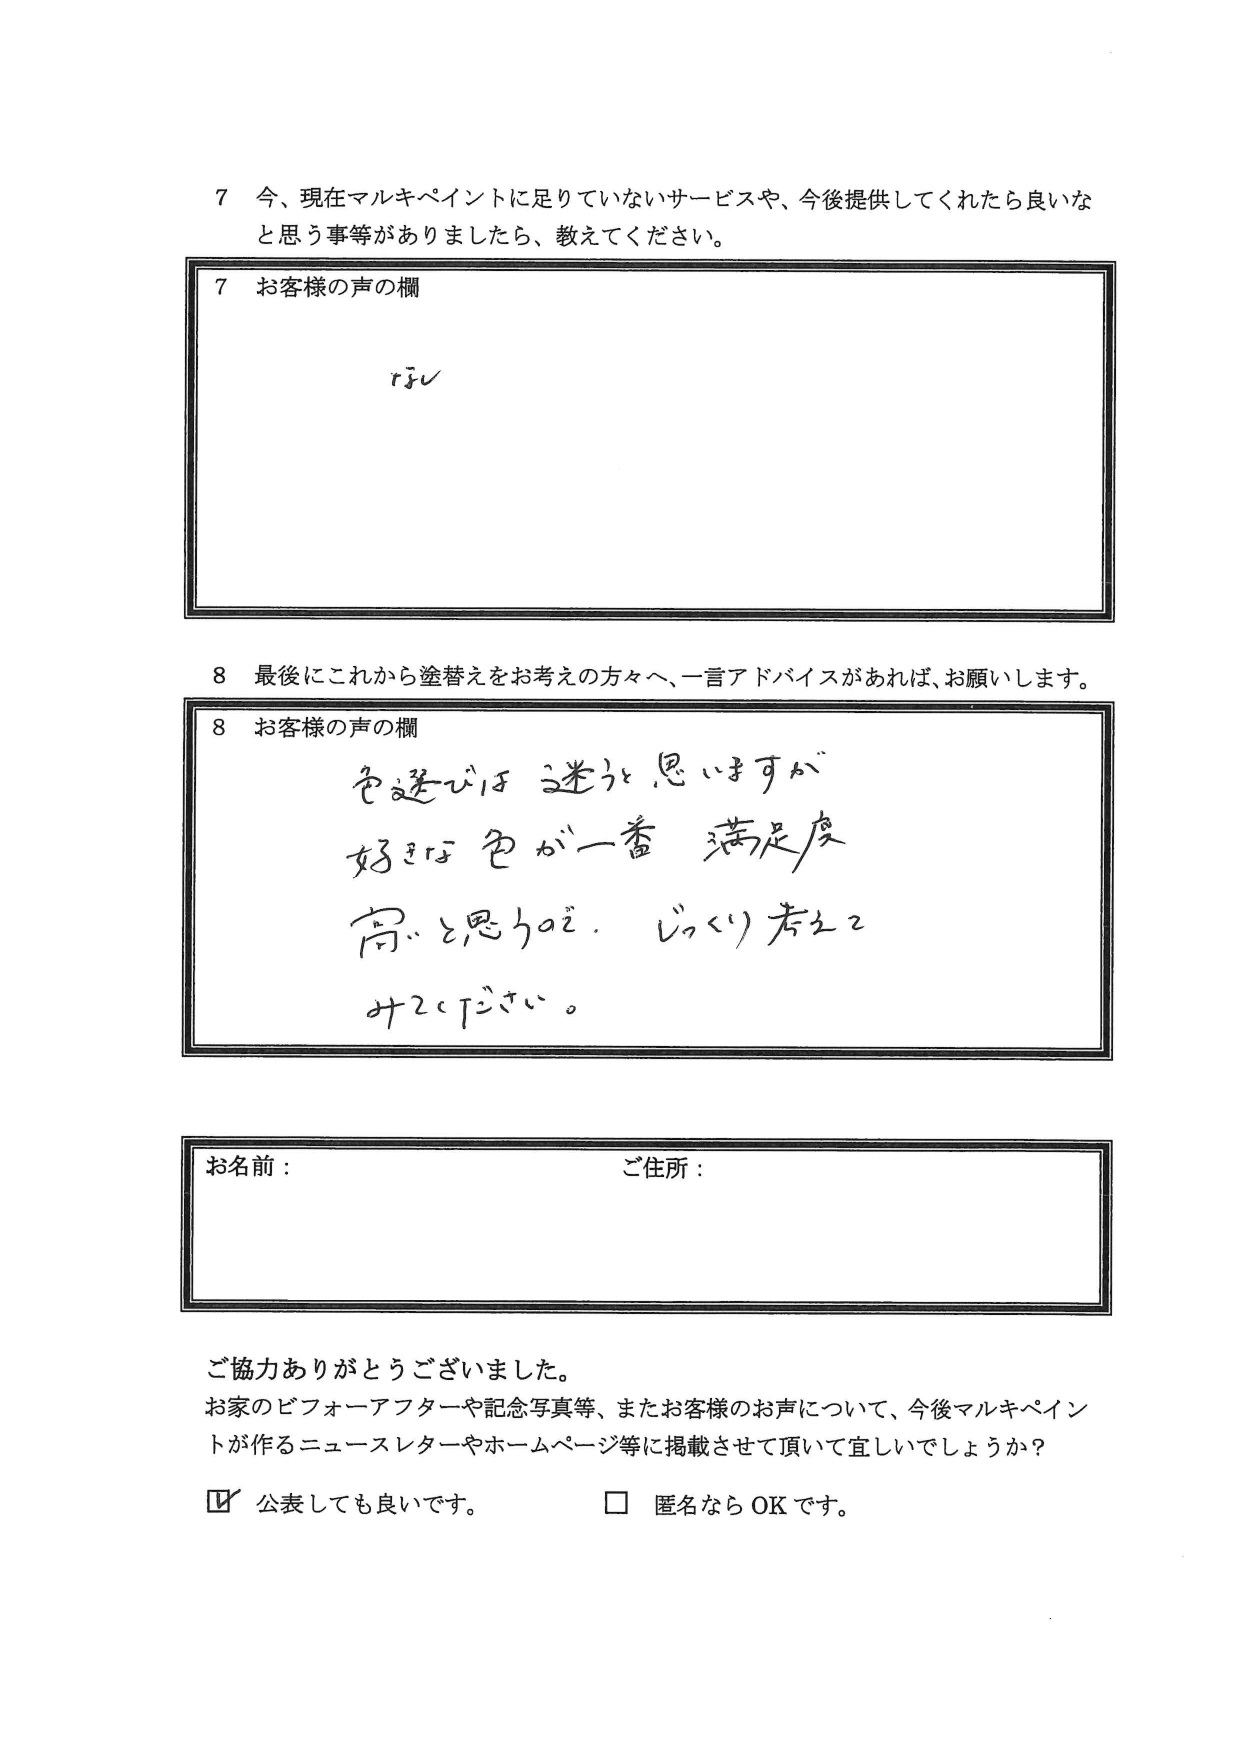 7　今、現在マルキペイントに足りていないサービスや、今後提供してくれたら良いな
と思う事等がありましたら、教えてください。
7　お客様の声の欄
なし
8　最後にこれから塗替えをお考えの方々へ、一言アドバイスがあれば、お願いします。
8　お客様の声の欄
色選びは 迷うと思いますが
好きな色が一番 満足度
高いと思うので、じっくり考えて
みてください。
お名前：　ご住所：
ご協力ありがとうございました。
お家のビフォーアフターや記念写真等、またお客様のお声について、今後マルキペイン
トが作るニュースレターやホームページ等に掲載させて頂いて宜しいでしょうか？
☑ 公表しても良いです。　□ 匿名なら OK です。